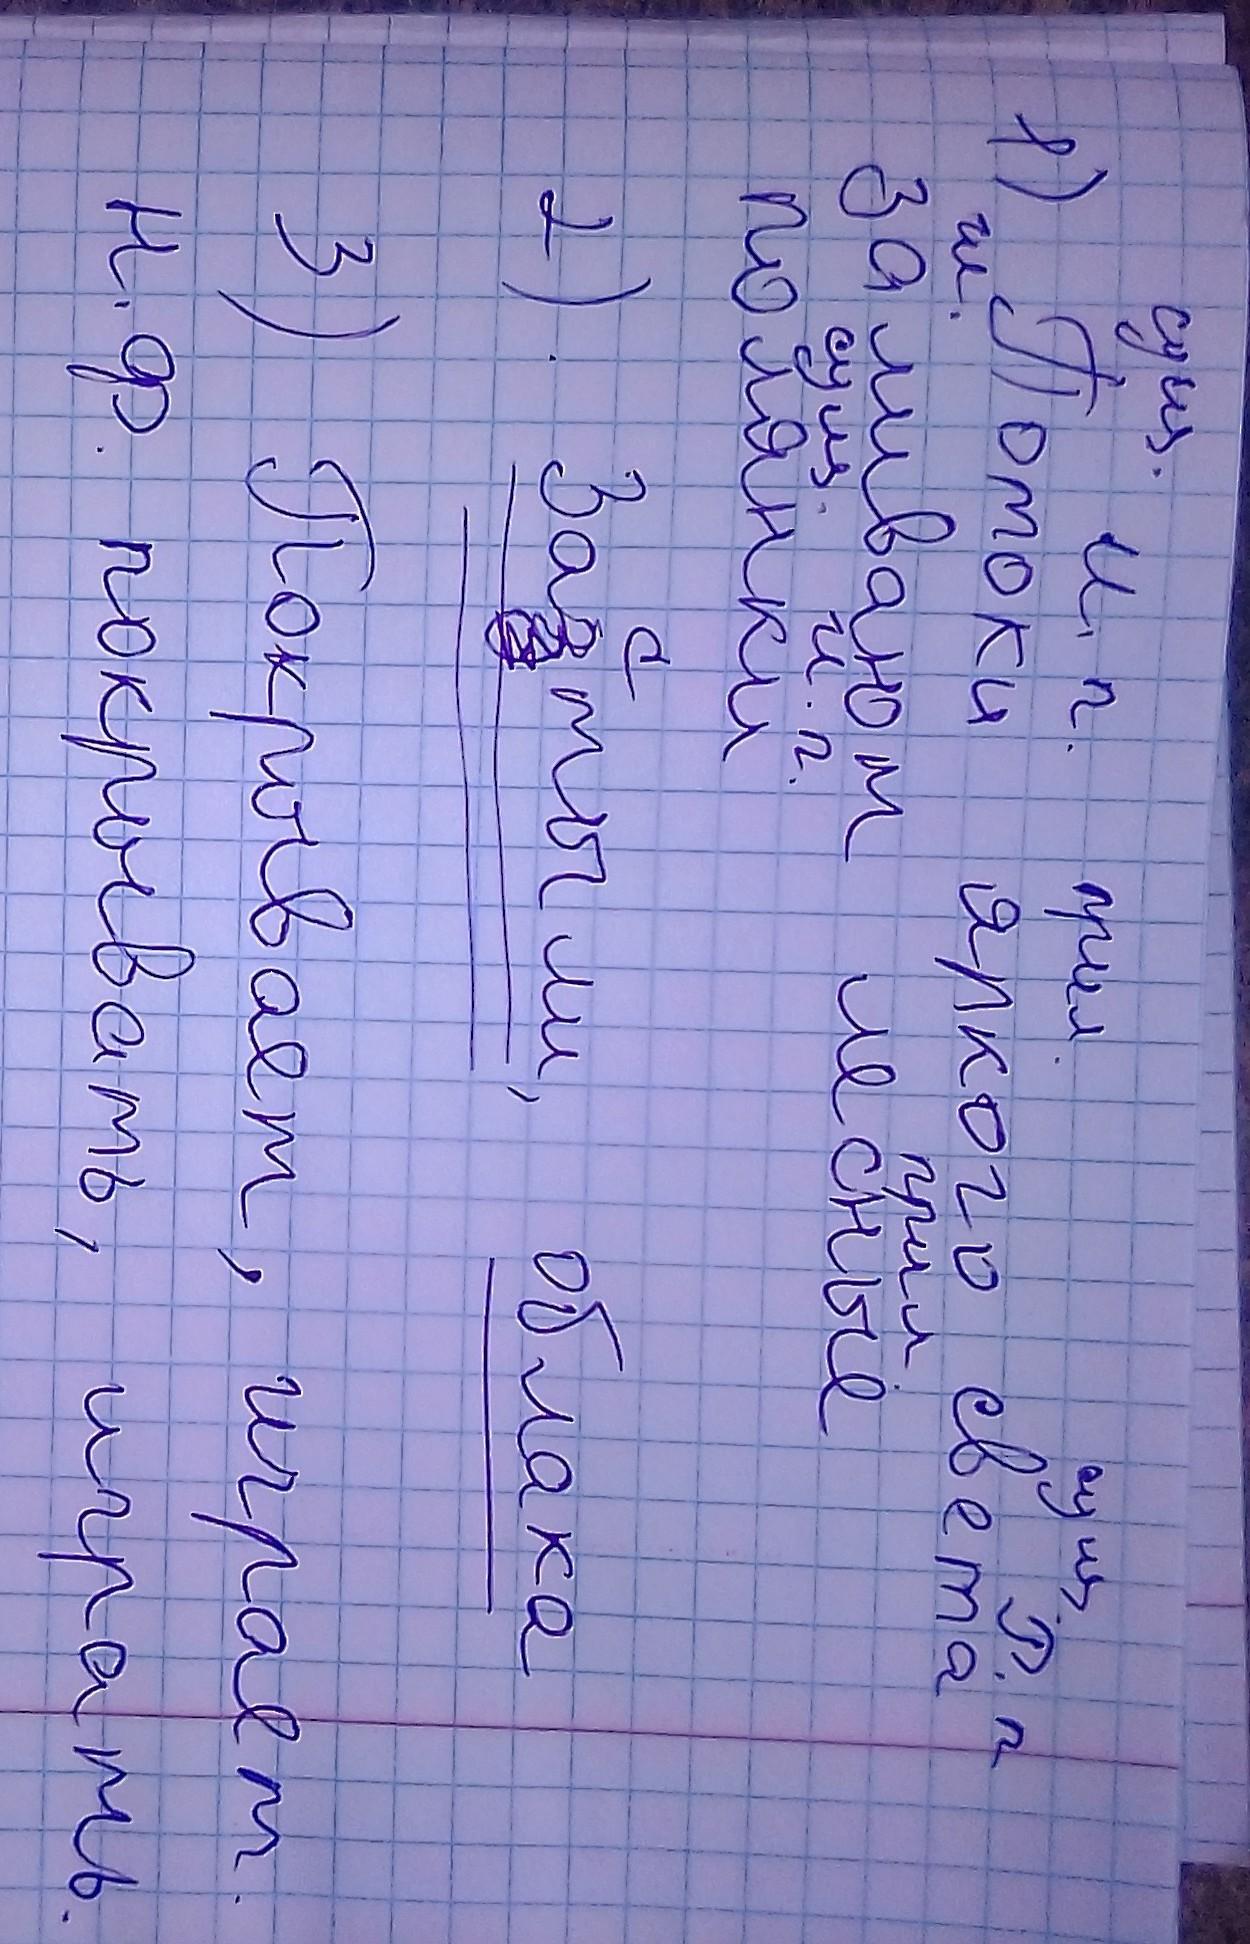 сущ. И. п. прил. сущ. Р. п
1) Потоки яркого света
гл. прил
заливают лесные
сущ. И. п.
полянки
2). Застыли, облака
3) Покрывает, играет.
Н. ф. покрывать, играть.